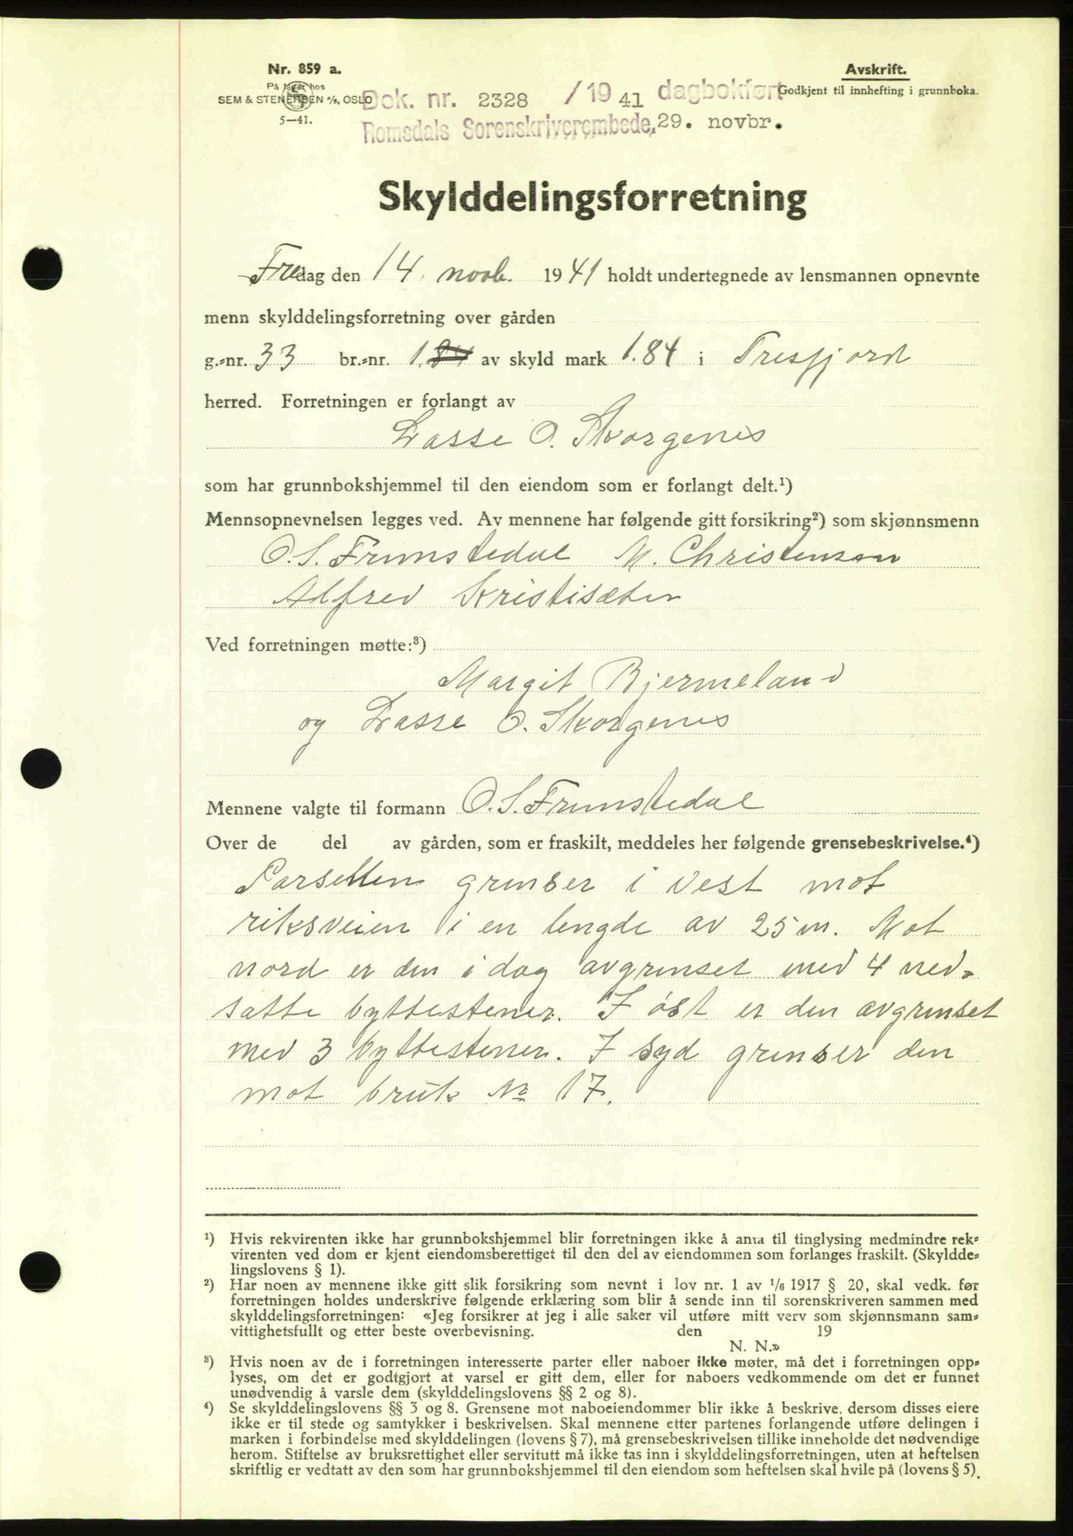 Nr. 859 a.
På lager hos
SEM & STENERSEN A/S, OSLO
5-41.
Avskrift.
Godkjent til innhefting i grunnboka.
Dok. nr. 2328 /1941 dagbokført
Romsdals Sorenskriverembede, 29. novbr.
Skylddelingsforretning
Fredag den 14. novb. 1941 holdt undertegnede av lensmannen opnevnte
menn skylddelingsforretning over gården
g.-nr. 33 br.-nr. 1 av skyld mark 1.84 i Tresfjord
herred. Forretningen er forlangt av
Lasse O. Skorgenes
som har grunnbokshjemmel til den eiendom som er forlangt delt.¹)
Mennsopnevnelsen legges ved. Av mennene har følgende gitt forsikring²) som skjønnsmenn
O. S. Frimstedal M. Christensen
Alfred Kristisæter
Ved forretningen møtte:³)
Margit Bjermeland
og Lasse O. Skorgenes
Mennene valgte til formann O. S. Frimstedal
Over de del av gården, som er fraskilt, meddeles her følgende grensebeskrivelse.⁴)
Parsellen grenser i vest mot
riksveien i en lengde av 25 m. Mot
nord er den i dag avgrenset med 4 ned-
satte byttestener. I øst er den avgrenset
med 3 byttestener. I syd grenser den
mot bruk No 17.
¹) Hvis rekvirenten ikke har grunnbokshjemmel blir forretningen ikke å anta til tinglysing medmindre rek-
virenten ved dom er kjent eiendomsberettiget til den del av eiendommen som forlanges fraskilt. (Skyldde-
lingslovens § 1).
²) Har noen av mennene ikke gitt slik forsikring som nevnt i lov nr. 1 av 1/6 1917 § 20, skal vedk. før
forretningen holdes underskrive følgende erklæring som blir å sende inn til sorenskriveren sammen med
skylddelingsforretningen: «Jeg forsikrer at jeg i alle saker vil utføre mitt verv som skjønnsmann sam-
vittighetsfullt og etter beste overbevisning. den 19
N. N.»
³) Hvis noen av de i forretningen interesserte parter eller naboer ikke møter, må det i forretningen opp-
lyses, om det er godtgjort at varsel er gitt dem, eller for naboers vedkommende om det er funnet
unødvendig å varsle dem (skylddelingslovens §§ 2 og 8).
⁴) Se skylddelingslovens §§ 3 og 8. Grensene mot naboeiendommer blir ikke å beskrive, dersom disses eiere
ikke er til stede og samtykker i beskrivelsen. Skal mennene etter partenes forlangende utføre delingen i
marken i forbindelse med skylddelingen (lovens § 7), må grensebeskrivelsen tillike inneholde det nødvendige
herom. Stiftelse av bruksrettighet eller servitutt må ikke tas inn i skylddelingsforretningen, uten at heftelsen
skriftlig er vedtatt av den som har grunnbokshjemmel til den eiendom som heftelsen skal hvile på (lovens § 5).